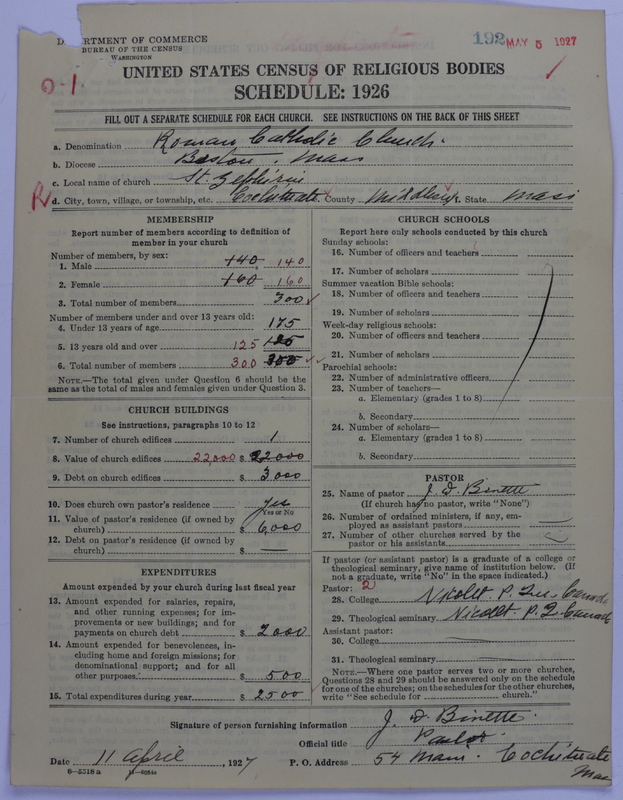 DEPARTMENT OF COMMERCE
BUREAU OF THE CENSUS
WASHINGTON
192 MAY 5 1927
0-1
UNITED STATES CENSUS OF RELIGIOUS BODIES
SCHEDULE: 1926
FILL OUT A SEPARATE SCHEDULE FOR EACH CHURCH. SEE INSTRUCTIONS ON THE BACK OF THIS SHEET
a. Denomination Roman Catholic Church.
b. Diocese Boston. Mass
c. Local name of church St. Zephirin
d. City, town, village, or township, etc. Cochituate County Middlesex State Mass
MEMBERSHIP
Report number of members according to definition of
member in your church
Number of members, by sex:
1. Male 140 140
2. Female 160 160
3. Total number of members 300
Number of members under and over 13 years old:
4. Under 13 years of age 175
5. 13 years old and over 125 125
6. Total number of members 300 300
NOTE.—The total given under Question 6 should be the
same as the total of males and females given under Question 3.
CHURCH BUILDINGS
See instructions, paragraphs 10 to 12
7. Number of church edifices 1
8. Value of church edifices 22,000 $ 22000
9. Debt on church edifices $ 3000
10. Does church own pastor's residence? Yes
Yes or No
11. Value of pastor's residence (if owned by
church) $ 6,000
12. Debt on pastor's residence (if owned by
church) $ —
EXPENDITURES
Amount expended by your church during last fiscal year
13. Amount expended for salaries, repairs,
and other running expenses; for im-
provements or new buildings; and for
payments on church debt $ 2000
14. Amount expended for benevolences, in-
cluding home and foreign missions; for
denominational support; and for all
other purposes. $ 500
15. Total expenditures during year $ 2500
CHURCH SCHOOLS
Report here only schools conducted by this church
Sunday schools:
16. Number of officers and teachers
17. Number of scholars
Summer vacation Bible schools:
18. Number of officers and teachers
19. Number of scholars
Week-day religious schools:
20. Number of officers and teachers
21. Number of scholars
Parochial schools:
22. Number of administrative officers
23. Number of teachers—
a. Elementary (grades 1 to 8)
b. Secondary
24. Number of scholars—
a. Elementary (grades 1 to 8)
b. Secondary
PASTOR
25. Name of pastor J. D. Binette
(If church has no pastor, write "None")
26. Number of ordained ministers, if any, em-
ployed as assistant pastors —
27. Number of other churches served by the
pastor or his assistants
If pastor (or assistant pastor) is a graduate of a college or
theological seminary, give name of institution below. (If
not a graduate, write "No" in the space indicated.)
Pastor: 2
28. College Nicolet P. Que. Canada
29. Theological seminary Nicolet P. Q. Canada
Assistant pastor:
30. College —
31. Theological seminary —
NOTE.—Where one pastor serves two or more churches,
Questions 28 and 29 should be answered only on the schedule
for one of the churches; on the schedules for the other churches,
write "See schedule for church."
Signature of person furnishing information J. D. Binette.
Official title Pastor
Date 11 April, 1927 P. O. Address 54 Main. Cochituate
Mass
8-5518a